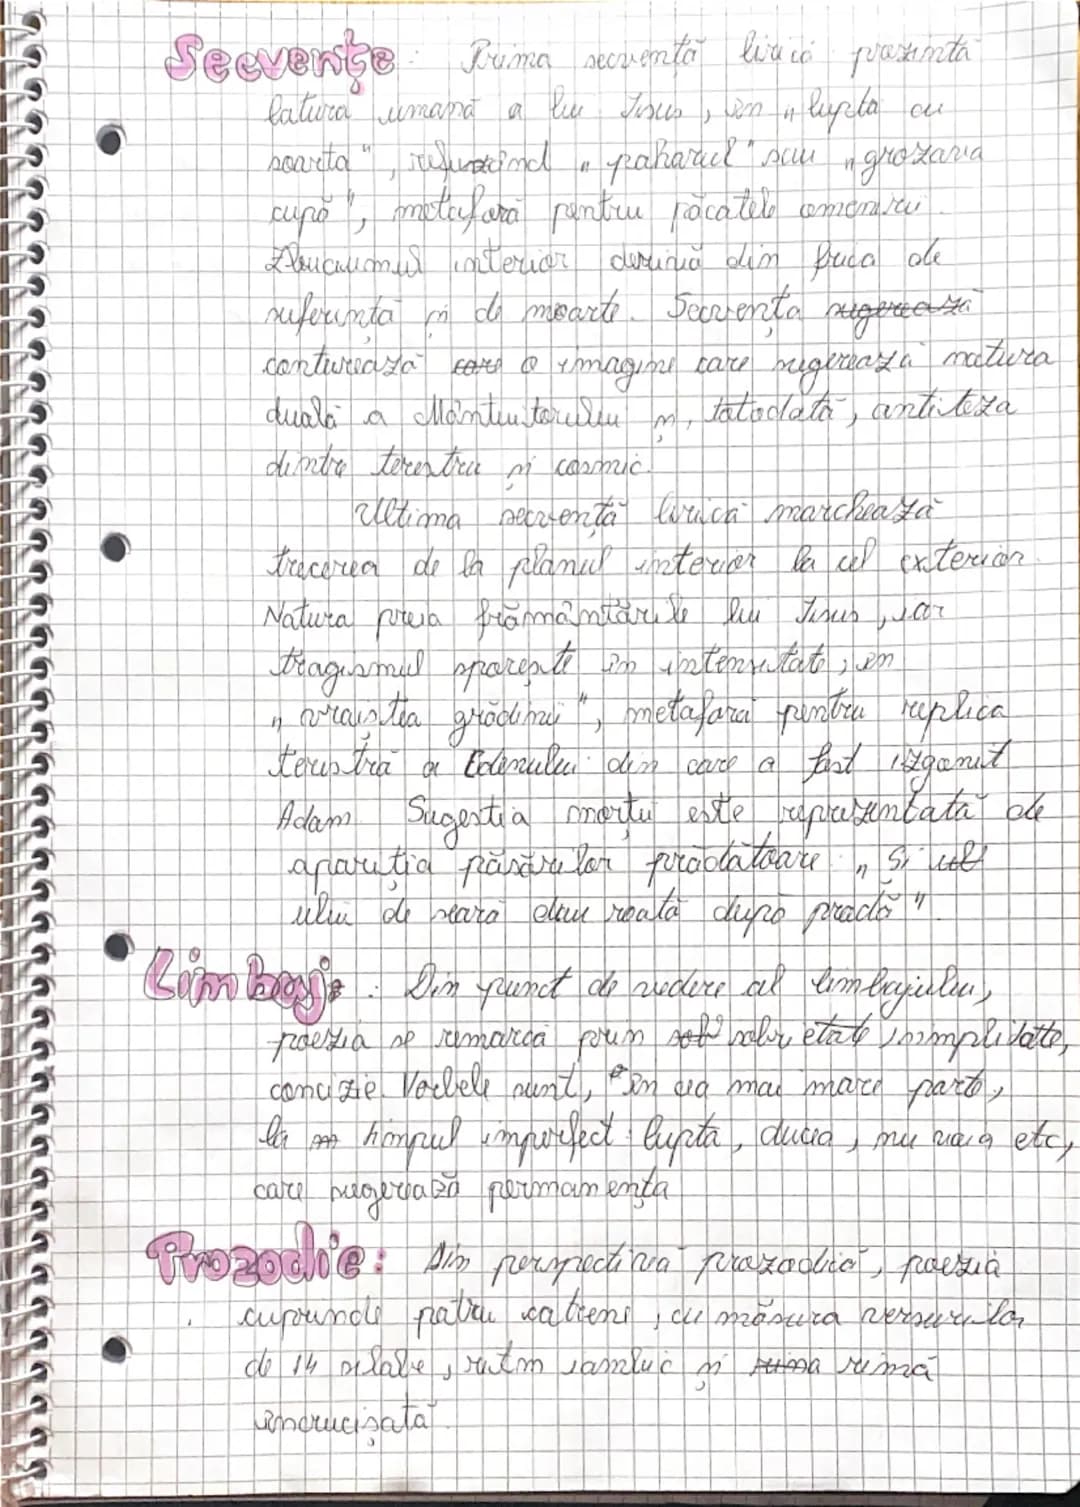 Secvențe: Prima secvență lirică prezintă
latura umană a lui Iisus, în „lupta cu
soarta", refuzând „paharul" sau „grozava
cupă", metaforă pentru păcatele omenirii.
Zbuciumul interior derivă din frica de
suferință și de moarte. Secvența sugerează
conturează care o imagine care sugerează natura
duală a Mântuitorului și, totodată, antiteza
dintre terestru și cosmic.
Ultima secvență lirică marchează
trecerea de la planul interior la cel exterior.
Natura preia frământările lui Iisus, iar
tragismul sporește în intensitate, în
„vraiștea grădinii", metaforă pentru replica
terestră a Edenului din care a fost izgonit
Adam. Sugestia morții este reprezentată de
apariția păsărilor prădătoare: „Și
ulii de seară dau roată după pradă".
Limbaj: Din punct de vedere al limbajului,
poezia se remarcă prin sobrietate, simplitate,
concizie. Verbele sunt, în cea mai mare parte,
la timpul imperfect: lupta, ducea, nu voia etc,
care sugerează permanența
Prozodie: Din perspectiva prozodică, poezia
cuprinde patru catrene, cu măsura versurilor
de 14 silabe, ritm iambic și rima rimă
încrucișată.